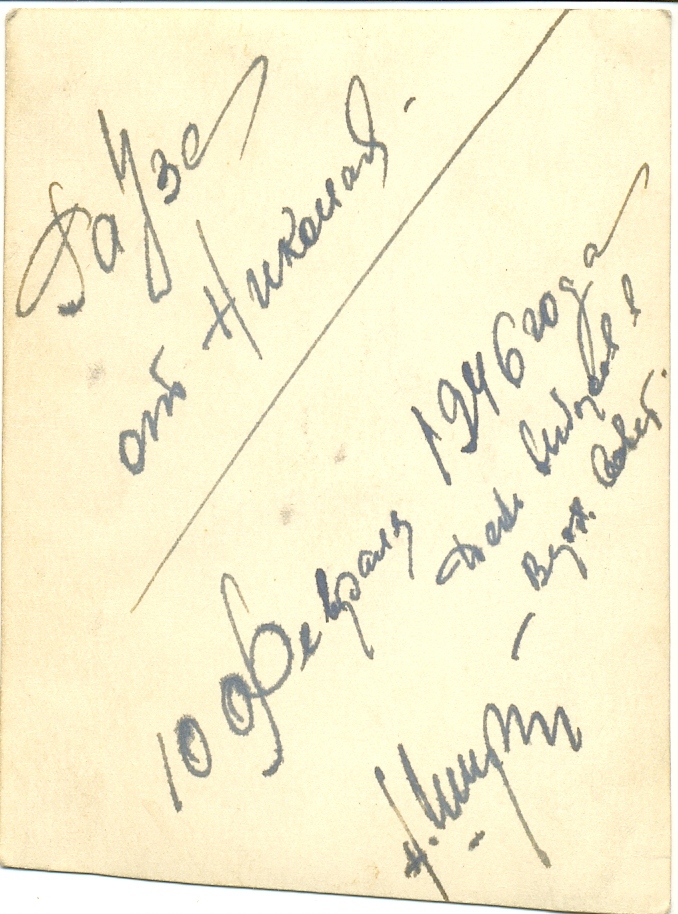 от Николая.
10 февраля 1946 года
День выборов!
Верх. Совет.